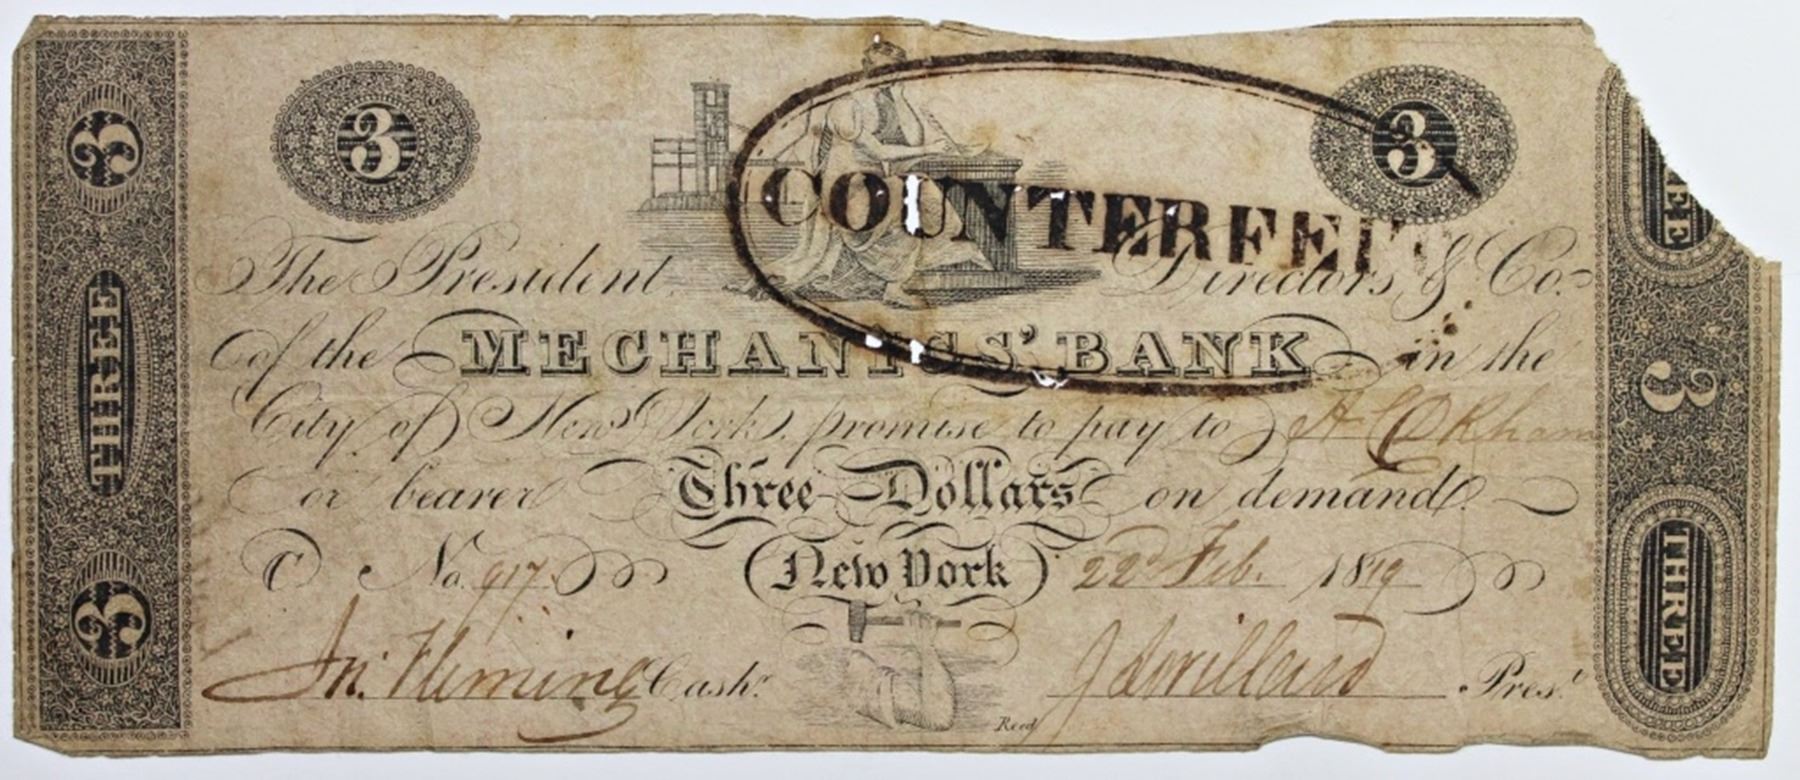 3 3
COUNTERFEIT
The President Directors & Co.
of the MECHANICS' BANK in the
City of New York promise to pay to
or bearer Three Dollars on demand.
C No. 917 (New York) 22d Feb. 1819
Jn. Fleming Cashr. Prest.
Reed
3
THREE
3
EE
3
THREE